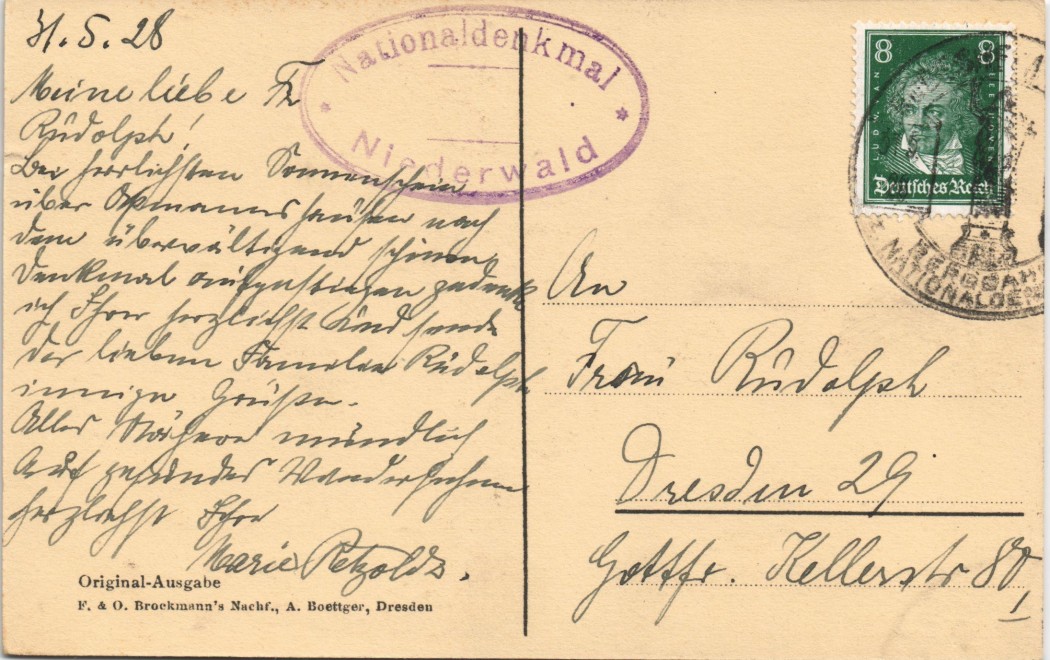 31.5.28
Meine liebe Fr
Rudolph!
Bei herrlichsten Sonnenschein
über Assmannshausen nach
dem überwältigend schönen
Denkmal aufgestiegen gedenke
ich Ihrer herzlichst und sende
der lieben Familie Rudolph
innige Grüße.
Alles Nähere mündlich
Auf gesundes Wiedersehen
herzlichst Ihre
Marie Petzold.
Original-Ausgabe
F. & O. Brockmann's Nachf., A. Boettger, Dresden
Nationaldenkmal
Niederwald
8 8
LUDW. VAN BEETHOVEN
Deutsches Reich
BERGBAH
NATIONALDEN
An
Frau Rudolph
Dresden 29
Gottfr. Kellerstr 80
I